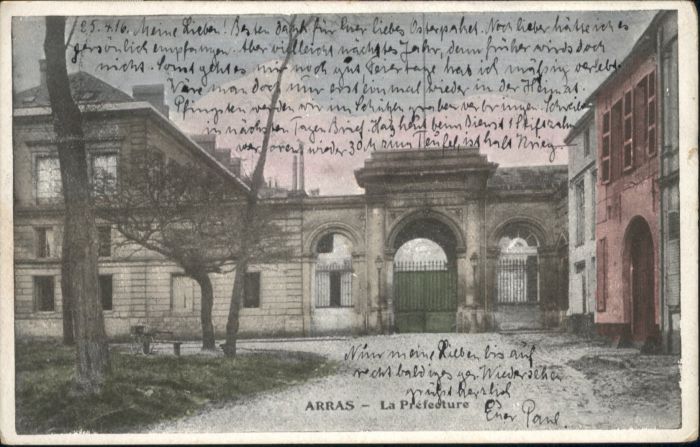 25.4.16. Meine Lieben! Besten Dank für Euer liebes Osterpaket. Noch lieber hätte ich es
persönlich empfangen. Aber vielleicht nächstes Jahr, denn früher wirds doch
nicht. Sonst geht es mir noch gut. Feiertage hab ich mäßig verlebt.
Wäre man doch nur erst einmal wieder in der Heimat.
Pfingsten werden wir im Schützengraben verbringen. Schreibe
in nächsten Tagen Brief. Hab heut beim Dienst 1 Steifezahn
verloren, wieder 30 M zum Teufel, ist halt Krieg
Nun meine Lieben bis auf
recht baldiges Wiedersehen
grüßt herzlich
Euer Paul.
ARRAS - La Préfecture